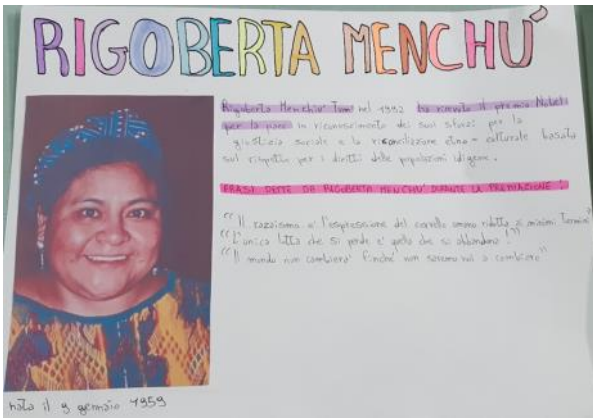 RIGOBERTA MENCHU'
Rigoberta Menchù Tum nel 1992 ha ricevuto il premio Nobel
per la pace in riconoscimento dei suoi sforzi per la
giustizia sociale e la riconcilazione etno-culturale basata
sul rispetto per i diritti delle popolazioni idigene.
FRASI DETTE DA RIGOBERTA MENCHU' DURANTE LA PREMIAZIONE:
"Il razzismo è l'espressione del cervello umano ridotto ai minimi termini"
"L'unica lotta che si perde è quella che si abbandona!"
"Il mondo non cambierà finché non saremo noi a cambiare"
nata il 9 gennaio 1959